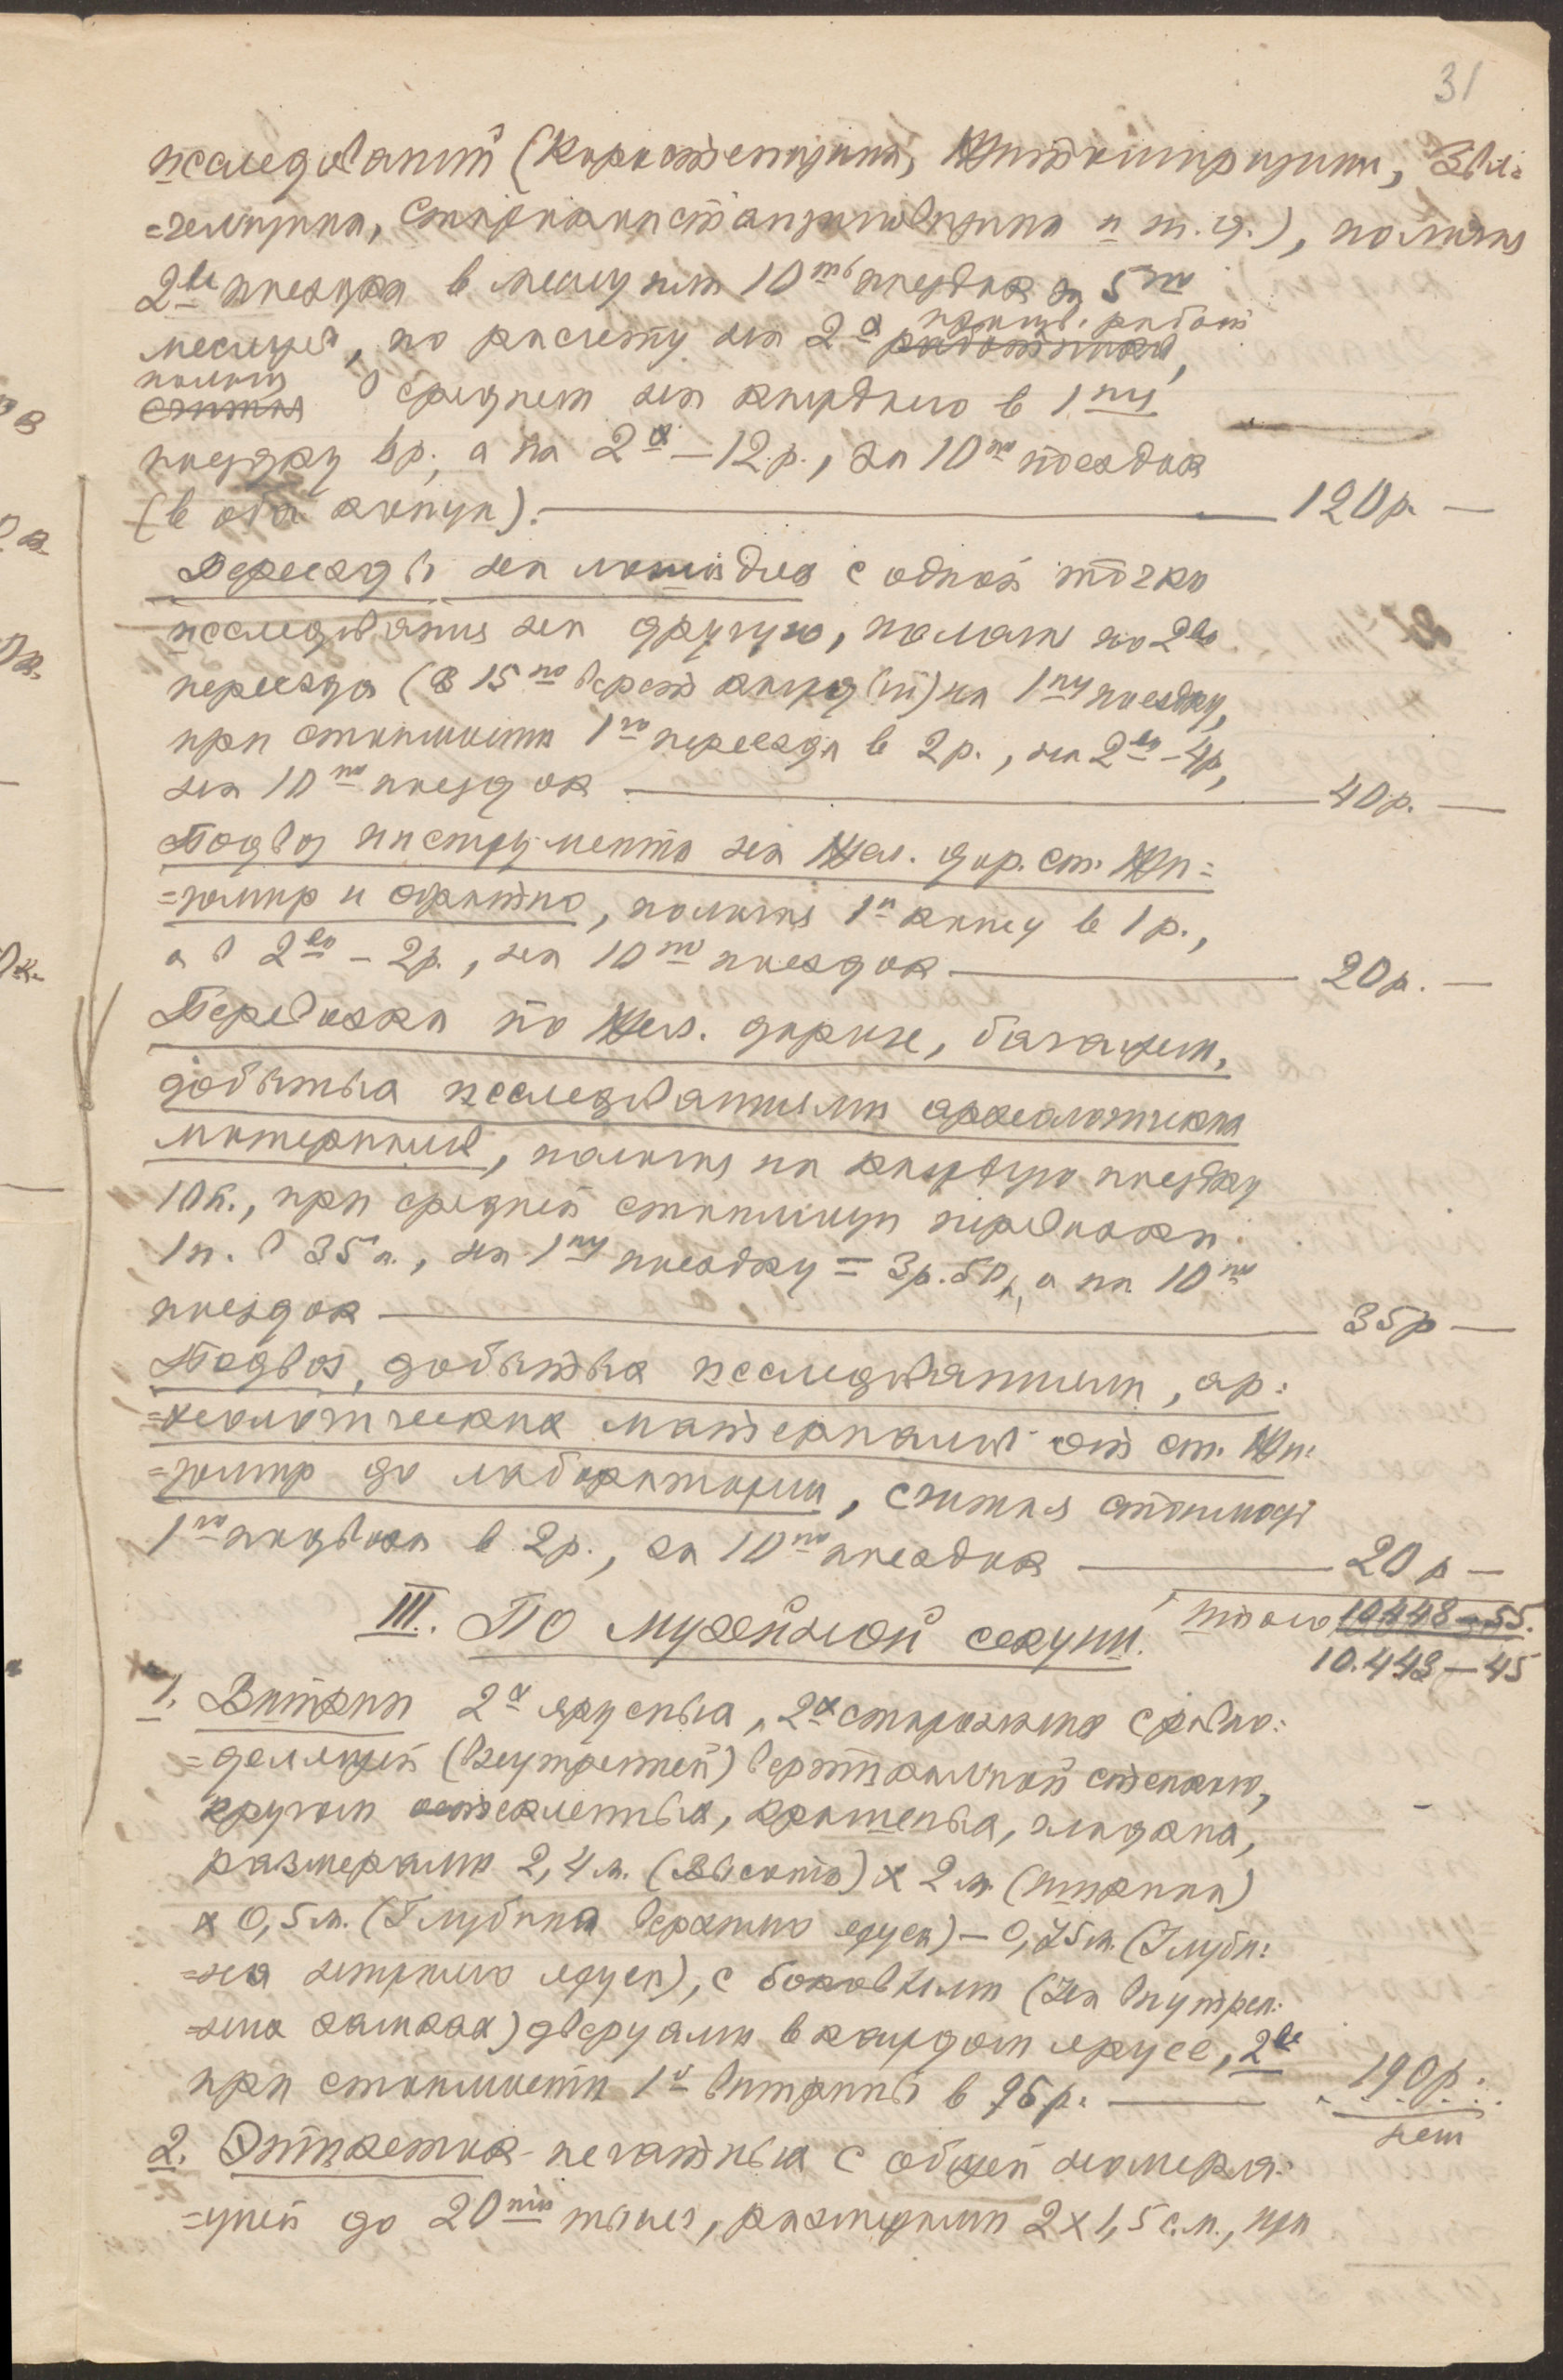 31
исследований (Коростенщина, Житомирщина, Звя=
=гельщина, Староконстантиновщина и т. д.), полагая
2ве поездки в месяц или 10ть поездок за 5ть
месяцев, по расчету на 2х научн. работ
работников,
полагая
считая в среднем на каждого в 1ну
поездку 6р., а на 2х – 12 р., за 10ть поездок
(в оба конца). 120р. —
Переезды на лошадях с одной точки
исследования на другую, полагая по 2ва
переезда (в 15ть верст каждый) на 1ну поездку,
при стоимости 1го переезда в 2р., на 2ва – 4р,
на 10ть поездок 40р. —
Подвоз инструмента на жел. дор. ст. Жи=
=томир и обратно, полагая 1н конец в 1 р.,
а в 2ва – 2р., на 10ть поездок 20р. —
Перевозка по жел. дороге, багажем,
добытых исследованиями археологических
материалов, полагая на каждую поездку
10п., при средней стоимости перевозки
1п. в 35к., на 1ну поездку = 3р. 50к, а на 10ть
поездок 35р —
Подвоз, добытых исследованиями, ар=
=хеологических материалов от ст. Жи=
=томир до лаборатории, считая стоимость
1го подвоза в 2р., за 10ть поездок 20 р —
Итого 10448 – 55.
III. По музейной секции. 10.448 – 45
1. Витрин 2х ярусных, 2х сторонних с разъ=
=деляющей (внутренней) вертикальной стенкою,
кругом остекленных, крашеных, гладких,
размерами 2,4 м. (высота) х 2 м. (ширина)
х 0,5 м. (глубина верхнего яруса) – 0,75 м. (глуби=
=на нижнего яруса), с боковыми (на внутрен=
=них замках) дверцами в каждом ярусе, 2ве
при стоимости 1й витрины в 95 р. 190р.
нет
2. Этикеток печатных с общей номера=
=цией до 20ти тысяч, размерами 2 х 1,5 с.м., при